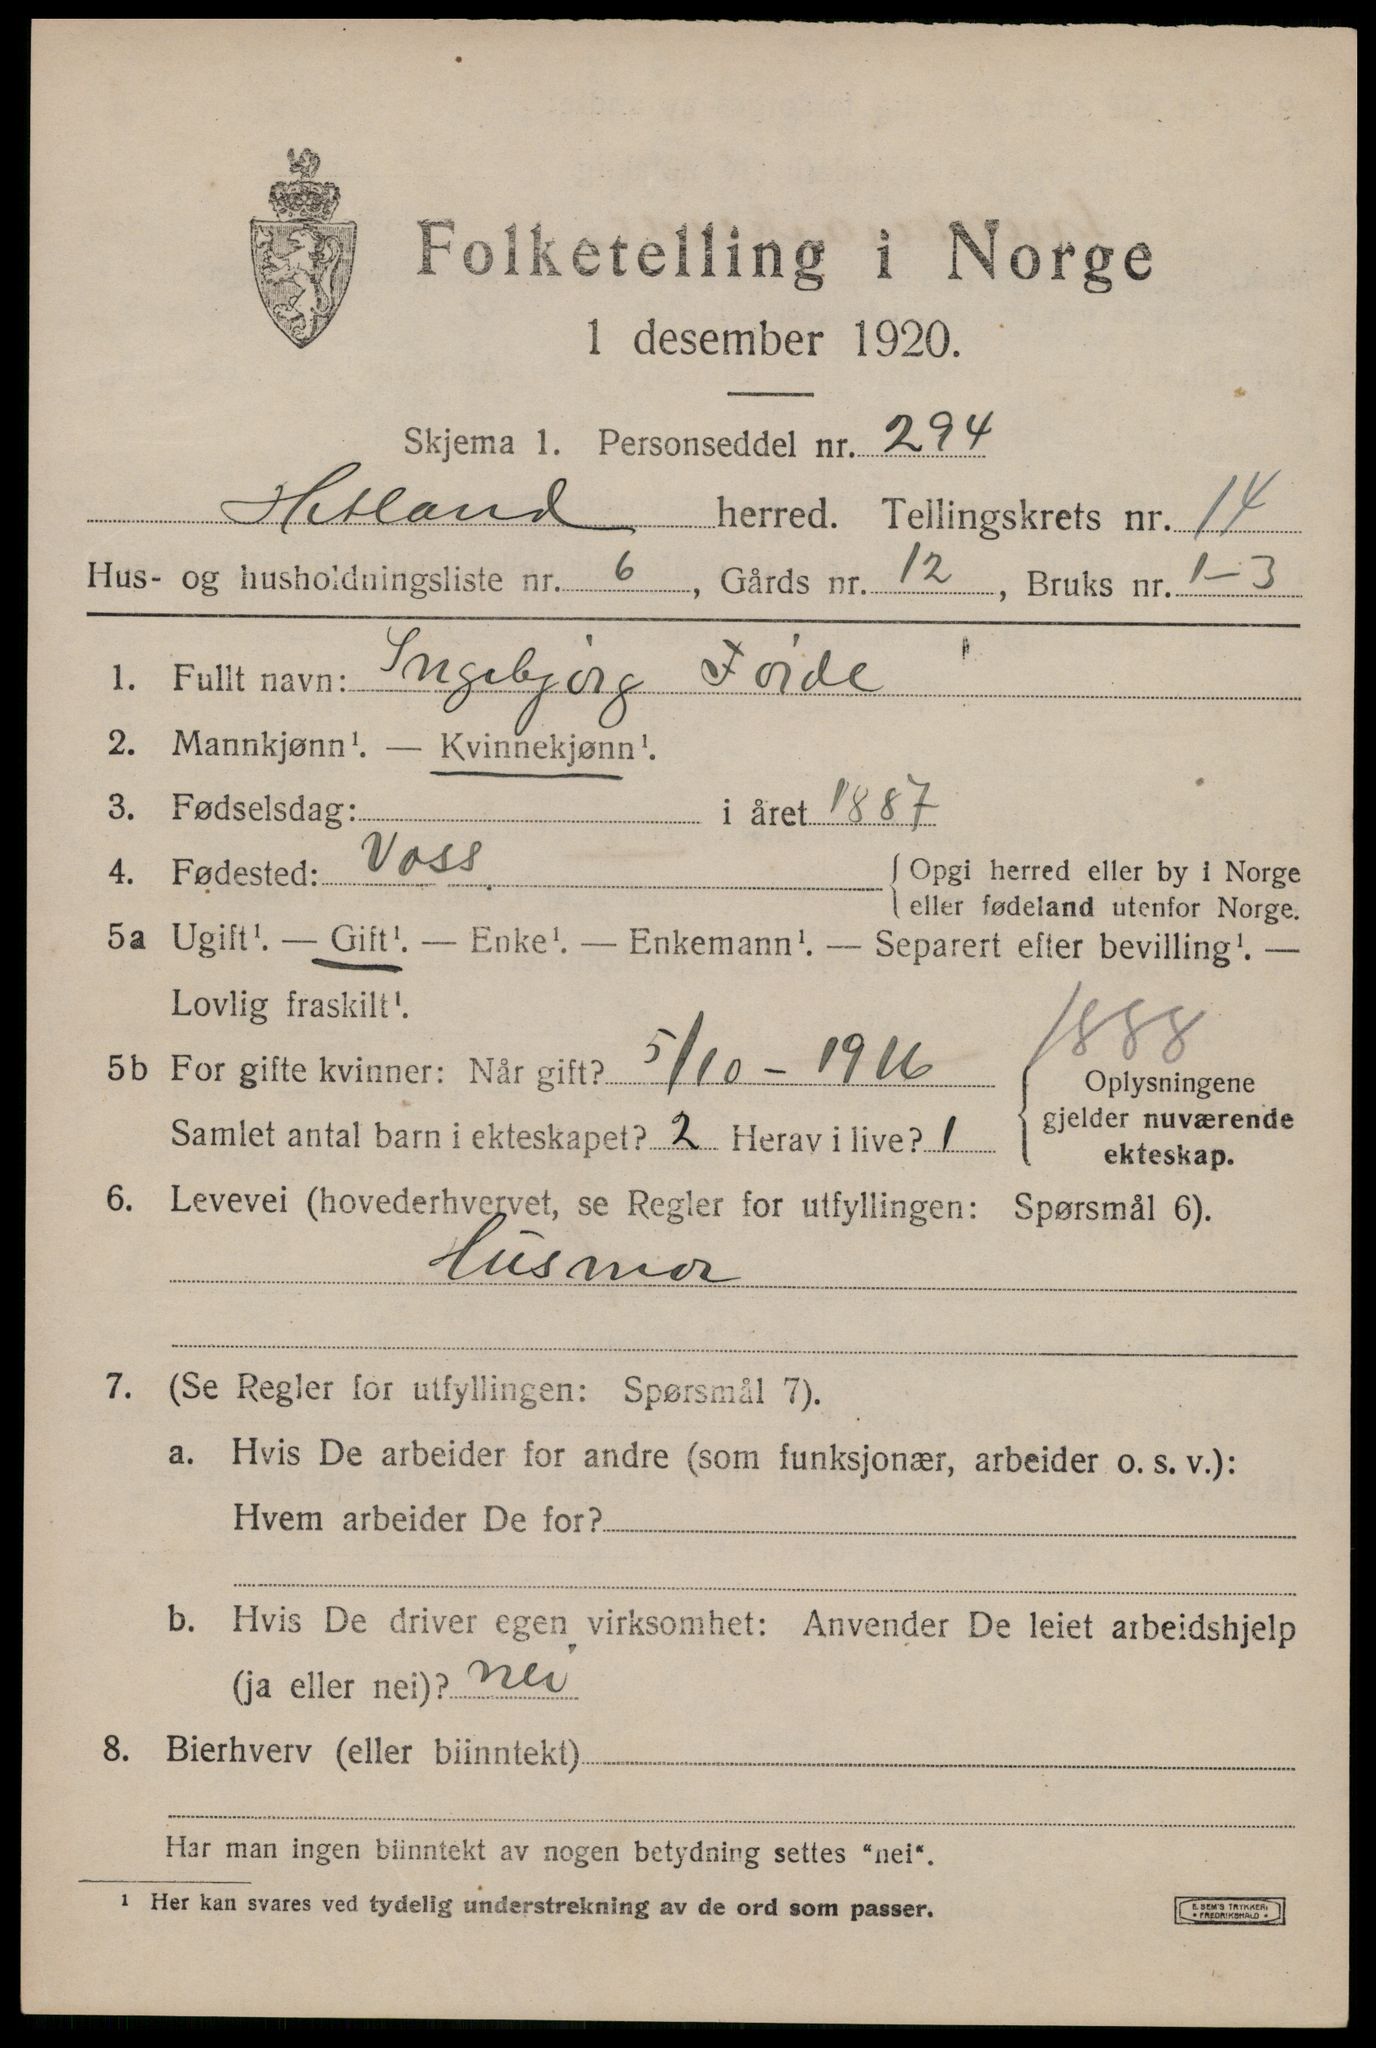 Folketelling i Norge
1 desember 1920.
Skjema 1. Personseddel nr. 294
Hetland herred. Tellingskrets nr. 14
Hus- og husholdningsliste nr. 6, Gårds nr. 12, Bruks nr. 1-3
1. Fullt navn: Ingebjørg Förde
2. Mannkjønn¹. — Kvinnekjønn¹.
3. Fødselsdag: i året 1887
4. Fødested: Voss { Opgi herred eller by i Norge
eller fødeland utenfor Norge.
5a Ugift¹. — Gift¹. — Enke¹. — Enkemann¹. — Separert efter bevilling¹. —
Lovlig fraskilt¹.
1888
5b For gifte kvinner: Når gift? 5/10 - 1916
Samlet antal barn i ekteskapet? 2 Herav i live? 1
{ Oplysningene
gjelder nuværende
ekteskap.
6. Levevei (hovederhvervet, se Regler for utfyllingen: Spørsmål 6).
Husmor
7. (Se Regler for utfyllingen: Spørsmål 7).
a. Hvis De arbeider for andre (som funksjonær, arbeider o. s. v.):
Hvem arbeider De for?
b. Hvis De driver egen virksomhet: Anvender De leiet arbeidshjelp
(ja eller nei)? nei
8. Bierhverv (eller biinntekt)
Har man ingen biinntekt av nogen betydning settes "nei".
¹ Her kan svares ved tydelig understrekning av de ord som passer.
E. SEM'S TRYKKERI
• FREDRIKSHALD •